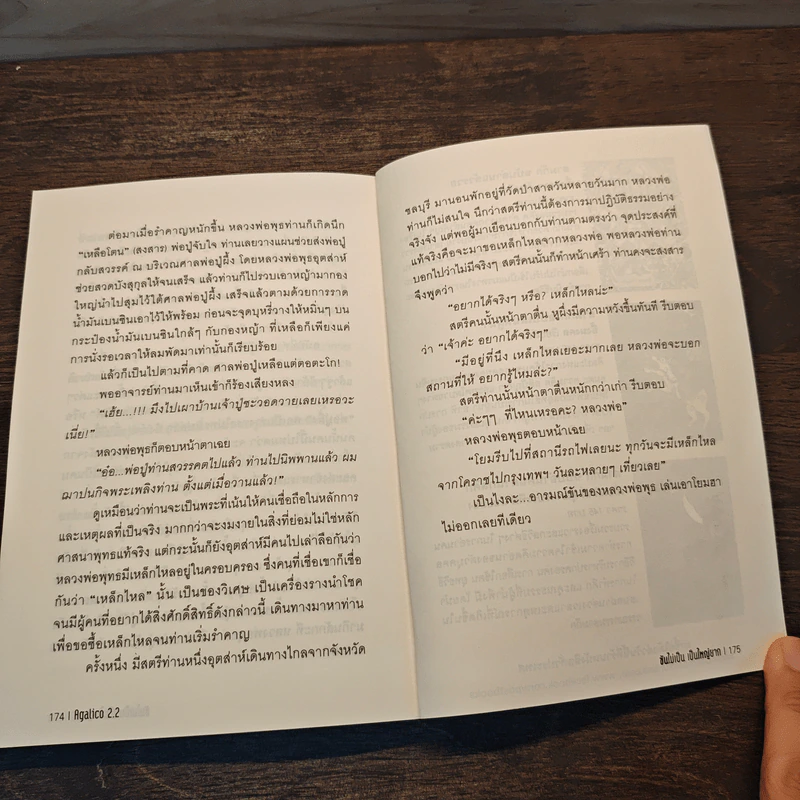 ต่อมาเมื่อรำคาญหนักขึ้น หลวงพ่อพุธท่านก็เกิดนึก
“เหลือโตน” (สงสาร) พ่อปู่จับใจ ท่านเลยวางแผนช่วยส่งพ่อปู่
กลับสวรรค์ ณ บริเวณศาลพ่อปู่ผึ้ง โดยหลวงพ่อพุธอุตส่าห์
ช่วยสวดบังสุกุลให้จนเสร็จ แล้วท่านก็ไปรวบเอาหญ้ามากอง
ใหญ่นำไปสุมไว้ใต้ศาลพ่อปู่ผึ้ง เสร็จแล้วตามด้วยการราด
น้ำมันเบนซินเอาไว้ให้พร้อม ก่อนจะจุดบุหรี่วางให้หมิ่นๆ บน
กระป๋องน้ำมันเบนซินใกล้ๆ กับกองหญ้า ที่เหลือก็เพียงแค่
การนั่งรอเวลาให้ลมพัดมาเท่านั้นก็เรียบร้อย
แล้วก็เป็นไปตามที่คาด ศาลพ่อปู่เหลือแต่ตอตะโก!
พออาจารย์ท่านมาเห็นเข้าก็ร้องเสียงหลง
“เฮ้ย...!!! มึงไปเผาบ้านเจ้าปู่ซะวอดวายเลยเหรอวะ
เนี่ย!”
หลวงพ่อพุธก็ตอบหน้าตาเฉย
“อ๋อ...พ่อปู่ท่านสวรรคตไปแล้ว ท่านไปนิพพานแล้ว ผม
ฌาปนกิจพระเพลิงท่าน ตั้งแต่เมื่อวานแล้ว!”
ดูเหมือนว่าท่านจะเป็นพระที่เน้นให้คนเชื่อถือในหลักการ
และเหตุผลที่เป็นจริง มากกว่าจะงมงายในสิ่งที่ย่อมไม่ใช่หลัก
ศาสนาพุทธแท้จริง แต่กระนั้นก็ยังอุตส่าห์มีคนไปเล่าลือกันว่า
หลวงพ่อพุทธมีเหล็กไหลอยู่ในครอบครอง ซึ่งคนที่เชื่อเขาก็เชื่อ
กันว่า “เหล็กไหล” นั้น เป็นของวิเศษ เป็นเครื่องรางนำโชค
จนมีผู้คนที่อยากได้สิ่งศักดิ์สิทธิ์ดังกล่าวนี้ เดินทางมาหาท่าน
เพื่อขอซื้อเหล็กไหลจนท่านเริ่มรำคาญ
ครั้งหนึ่ง มีสตรีท่านหนึ่งอุตส่าห์เดินทางไกลจากจังหวัด
174 | Agalico 2.2
ชลบุรี มานอนพักอยู่ที่วัดป่าสาลวันหลายวันมาก หลวงพ่อ
ท่านก็ไม่สนใจ นึกว่าสตรีท่านนี้ต้องการมาปฏิบัติธรรมอย่าง
จริงจัง แต่พอผู้มาเยือนบอกกับท่านตามตรงว่า จุดประสงค์ที่
แท้จริงคือจะมาขอเหล็กไหลจากหลวงพ่อ พอหลวงพ่อท่าน
บอกไปว่าไม่มีจริงๆ สตรีคนนั้นก็ทำหน้าเศร้า ท่านคงจะสงสาร
จึงพูดว่า
“อยากได้จริงๆ หรือ? เหล็กไหลน่ะ”
สตรีคนนั้นหน้าตาตื่น หูผึ่งมีความหวังขึ้นทันที รีบตอบ
ว่า “เจ้าค่ะ อยากได้จริงๆ”
“มีอยู่ที่นึง เหล็กไหลเยอะมากเลย หลวงพ่อจะบอก
สถานที่ให้ อยากรู้ไหมล่ะ?”
สตรีท่านนั้นหน้าตาตื่นหนักกว่าเก่า รีบตอบ
“ค่ะๆๆ ที่ไหนเหรอคะ? หลวงพ่อ”
หลวงพ่อพุธตอบหน้าเฉย
“โยมรีบไปที่สถานีรถไฟเลยนะ ทุกวันจะมีเหล็กไหล
จากโคราชไปกรุงเทพฯ วันละหลายๆ เที่ยวเลย”
เป็นไงละ...อารมณ์ขันของหลวงพ่อพุธ เล่นเอาโยมฮา
ไม่ออกเลยทีเดียว
ชันไม่เป็น เป็นใหญ่ยาก | 175